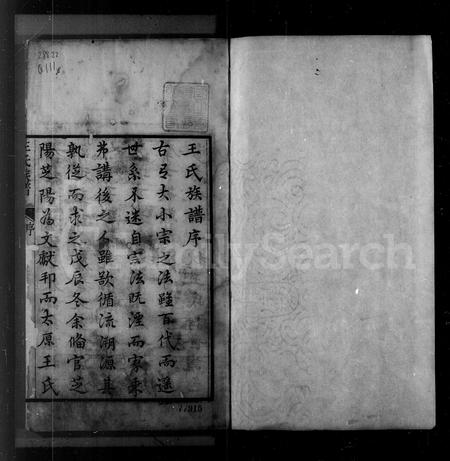 王氏族譜序
古有大小宗之法雖百代而遞
世系不迷自宗法既湮而家乘
弗講後之人雖欲循流溯源其
孰從而求之戊辰冬余偹官芝
陽芝陽為文獻邦而太原王氏
王氏族譜
序
77315
FamilySearch